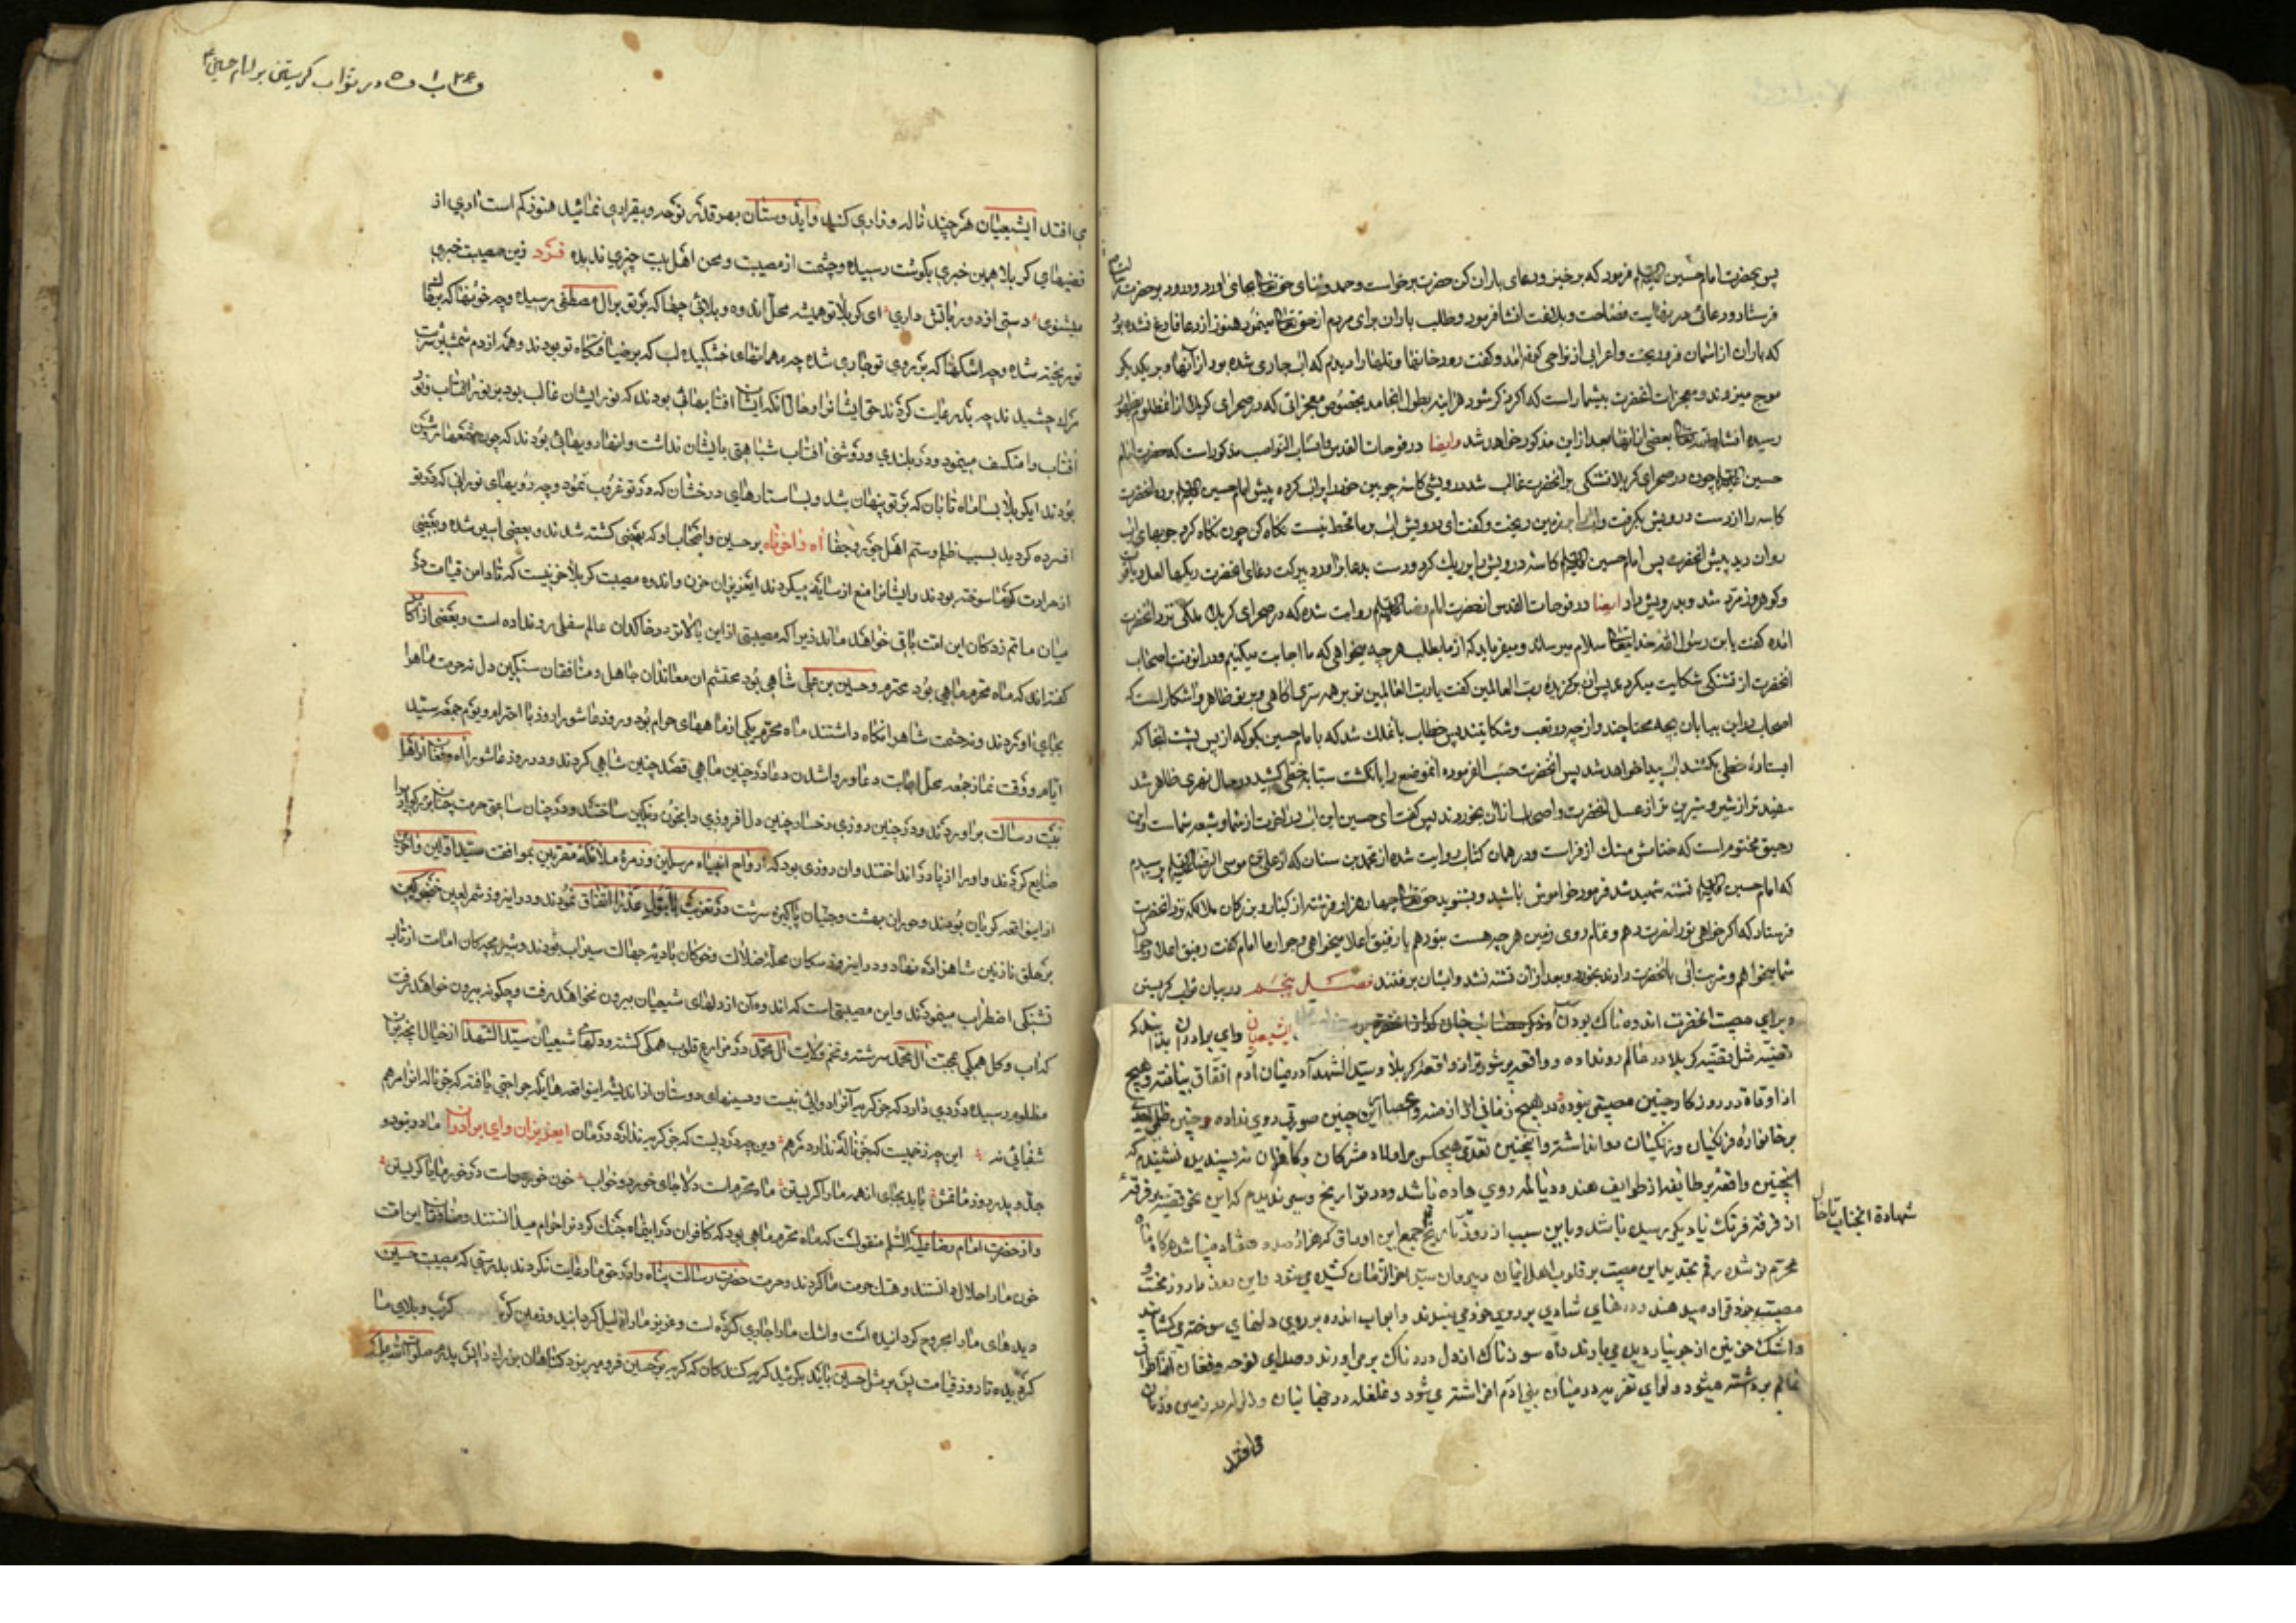 پس بحضرت امام حسین فرمود که برخیز و دعای باران کن حضرت برخواست و حمد و ثنای حق تعالی بجای اورد و درود بر حضرت
فرستاد و دعائی در نهایت فصاحت و بلاغت انشا فرمود و طلب باران برای مردم از حق تعالی مینمود هنوز از دعا فارغ نشده بود
که باران از اسمان فرو ریخت و اعرابی از نواحی کوفه امد و کفت رودخانها و تلها را دیدم که اب جاری شده بود از آنها و بر یکدیکر
موج میزوند و معجزات انحضرت بیشمار است که اکر ذکر شود هراینه بطول انجامد بخصوص معجزاتی که در صحرای کربلا از ان مظلوم بظهور
رسیده انشاءالله تعالی بعضی از انها بعد از این مذکور خواهد شد وایضا در فوحات القدس مذکور است که حضرت امام
حسین چون در صحرای کربلا تشنکی بر انحضرت غالب شد درویشی کاسهٔ چوبین خود را پر اب کرده پیش امام حسین برد انحضرت
کاسه را از دست درویش بکرفت و اب را بر زمین ریخت و کفت ای درویش اب بر ما قحط نیست نکاه کن چون نکاه کرد جویهای اب
روان دید پیش انحضرت پس امام حسین کاسه درویش را پر ریک کرد و دست بدعا براورد ببرکت دعای انحضرت ریکها لعل و یاقوت
و کوهر و زمرد شد و بدرویش داد ایضا در فوحات القدس از حضرت امام رضا روایت شده که در صحرای کربلا ملکی نزد انحضرت
امده کفت یا بن رسول الله خدایتعالی سلام میرساند و میفرماید که از ما بطلب هر چه میخواهی که ما اجابت میکنیم و در انوقت اصحاب
انحضرت از تشنکی شکایت میکردند پس ان برکزیده رب العالمین کفت یا رب العالمین تو بر همه سری اکاهی و بر تو ظاهر و اشکار است که
اصحاب در این بیابان بچه محتاجند و از چه در تعب و شکایتند پس خطاب بآنملک شد که با امام حسین بکو که از پس پشت انجا که
ایستادهٔ خطی بکش اب پیدا خواهد شد پس انحضرت حسب الفرموده انموضع را بانکشت سبابه خطی کشید در حال نهری ظاهر شد
سفیدتر از شیر و شیرین تر از عسل انحضرت و اصحاب از ان بخوردند پس کفت ای حسین این اب در اخرت از شما و شیعه شماست و این
رحیق مختوم است که ختامش مشک ازفر است و در همان کتاب روایت شده از محمد بن سنان که از علی بن موسی الرضا پرسیدم
که امام حسین تشنه شهید شد فرمود خواموش باشید و بشنوید حق تعالی چهار هزار فرشته از کبار و بزرکان ملائکه نزد انحضرت
فرستاد که اکر خواهی تو را نصرت دهم و تمام روی زمین هر چه هست بتو دهم یا رفیق اعلا میخواهی و جوار ما امام کفت رفیق اعلا و جوار
شما میخواهم و شربت آبی بانحضرت دادند بخورد و بعد از ان تشنه نشد و ایشان برفتند فصل پنجم در بیان ثواب کریستن
و برای مصیبت انحضرت اندوهناک بودن ایشیعیان و ای برادران بدانید که
قضیّه مثل قضیّه کربلا در عالم رونداده و واقعه پرشورتر از واقعهٔ کربلا و سیّد الشهدآ در میان آدم اتفاق نیافته و هیچ
از اوقات در روزکار چنین مصیبتی نبوده در هیچ زمانی از ازمنه و اعصار این چنین صورتی روی نداده و چنین ظلمی
بر خانوادهٔ فرنکیان و زنکیان روا نداشته و اینچنین تعدی هیچکس بر اولاد مشرکان و کافران نه پسندیده نشنیدم که
اینچنین واقعهٔ بر طایفه از طوایف هند و دنیا له روی داده باشد و در تواریخ و سیر ندیدم که این نحو قضیه بر فرقهٔ
از فرقهٔ فرنک نیا دیکر رسیده باشد و باین سبب از روز تاریخ جمع این اوراق که هزار و صد و هفتاد میباشد هر کاه ماه
محرم نو شده رقم تجدید این مصیبت بر قلوب اهل ایمان و پیروان سید اخر الزمان کشیده میشود و این روز مار وز محنت و
مصیبت خود قرار میدهند و درهای شادی بر روی خود می بندند و ابواب اندوه بر روی دلهای سوخته میکشایند
و اشک خونین از جویبار دیده می بارند و آه سوزناک از دل دردناک بر می اورند و صدای نوحه و فغان
عالم برداشته میشود و لوای تعزیه در میان بنی ادم افراشته می شود و غلغله در جهانیان و زلزله در زمین و زمان
می افتد
شهادة انجناب
باب در ثواب کریستن بر امام حسین
می افتد ایشیعیان هر چند ناله و زاری کنید و ایدوستان بهر قدر نوحه و بیقراری نمائید هنوز کم است اری از
قضیهای کربلا همین خبری بکوشت رسیده و چشمت از مصیبت و محن اهل بیت چیزی ندیده فرد زین مصیبت خبری
میشنوی دستی از دور بآتش داری ای کربلا تو همیشه محل اندوه و بلائی چها که بر تو بر ال مصطفی رسیده و چه خونها که بر خاک
تو ریخته شده و چه اشکها که بر روی تو جاری شده چه مهمانهای خشکیده لب که در ضیافتکاه تو بودند و همه از دم شمشیر شربت
مرک چشیدند چه بد رعایت کردند حق ایشانرا و حال آنکه ایشان افتابهائی بودند که نور ایشان غالب بود بر نور افتاب و نور
افتاب را منکسف مینمود و در بلندی و روشنی افتاب شباهتی بایشان نداشت و انهار و یهائی بودند که چون چشمها روشن
بودند ایکربلا بسا ماه تابان که بر تو پنهان شد و بسا ستارهای درخشان که در تو غروب نمود و چه رویهای نورانی که در تو
افسرده کردید بسبب ظلم و ستم اهل جور و جفا اه وا حزناه بر حسین و اصحاب او که بعضی کشته شدند و بعضی اسیر شده و بعضی
از حرارت کرما سوخته بودند و ایشانرا منع از سایه میکردند ایعزیزان حزن و اندوه مصیبت کربلا حزنیست که تا دامن قیامت در
میان ماتم زدکان این امت باقی خواهد ماند زیرا که مصیبتی از این بالاتر در خاکدان عالم سفلی رو نداده است و بعضی از اکابر
کفته اند که ماه محرم ماهی بود محترم و حسین بن علی شاهی بود محتشم ان معاندان جاهل و منافقان سنکین دل نه حرمت ماه را
بجای اوردند و نه حشمت شاه را نکاه داشتند ماه محرم یکی از ماههای حرام بود و روز عاشورا روز با احترام و یوم جمعه سید
ایام و وقت نماز جمعه محل اجابت دعا و روا شدن دعا در چنین ماهی قصد چنین شاهی کردند و در روز عاشورا
بیت رسالت براوردند و در چنین روزی رخسار چنین دلافروزی را بخون رنکین ساختند و در چنان ساعتی حرمت چنان بزرکوار را
ضایع کردند و او را از پا در انداختند و ان روزی بود که ارواح انبیاء مرسلین و زمرهٔ ملائکهٔ مقربین بموافقت سید اولین و اخرین
از اینواقعه کریان بودند و حوران بهشت و جنیان پاکیزه سرشت در تعزیت بتول عذرا اتفاق نمودند و در اینروز شمر لعین خنجر کین
بر حلق نازنین شاهزاده نهاد و در اینروز سکان محلهٔ ضلالت و خوکان بادیهٔ جهالت سیراب بودند و شیر بچه کان امامت از تاب
تشنکی اضطراب مینمودند و این مصیبتی است که اندوه آن از دلهای شیعیان بیرون نخواهد رفت و چکونه بیرون خواهد رفت
که اب و کل همکی بمحبت ال محمد سرشته و تخم ولایت ال محمد در مزارع قلوب همکی کشته و دلهای شیعیان سید الشهدا از خیال انچه بر ان
مظلوم رسیده دردی دارد که جز کریه آنرا دوائی نیست و سینهای دوستان از اندیشه اینواقعه هایله جراحتی یافته که جز ناله انرا مرهم
شفائی نه این چه زخمیست که جز ناله ندارد مرهم وین چه دردیست که جز کریه ندارد درمان ایعزیزان و ای برادران مادر و
جد و پدر در روز ماتمش باید بجای انهمه ما را کریستن ماه محرم است دلا جای خورد و خواب خون خور مباح در خور ما یا کریستن
و از حضرت امام رضا علیه السلم منقولست که ماه محرم ماهی بود که کافران در اینماه جنک کردنرا حرام میدانستند و منافقان این امت
خون ما را حلال دانستند و هتک حرمت ما کردند و حرمت حضرت رسالت پناه را در حق ما رعایت نکردند بدرستی که مصیبت حسین
دیدهای ما را مجروح کردانیده است و اشک ما را جاری کرده است و عزیز ما را ذلیل کردانید و زمین کربلا کرب و بلای ما
کردیده تا روز قیامت پس بر مثل حسین باید بکریند کریه کنندکان که کریه بر حسین فرو میریزد کناهان بزرک را پس پدرم صلوات الله علیه